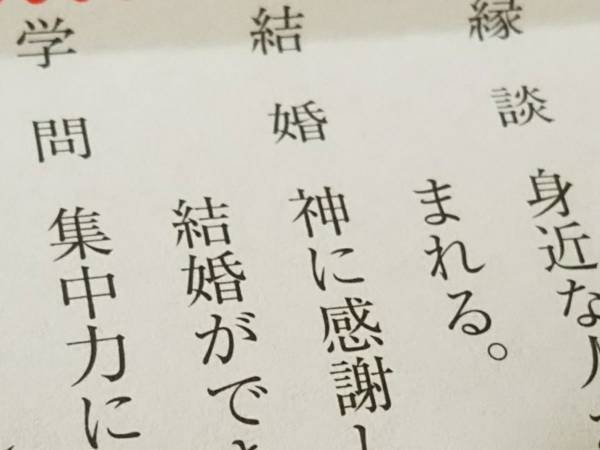 縁談
身近な
まれる。
結婚
神に感謝し
結婚ができ
学問
集中力に